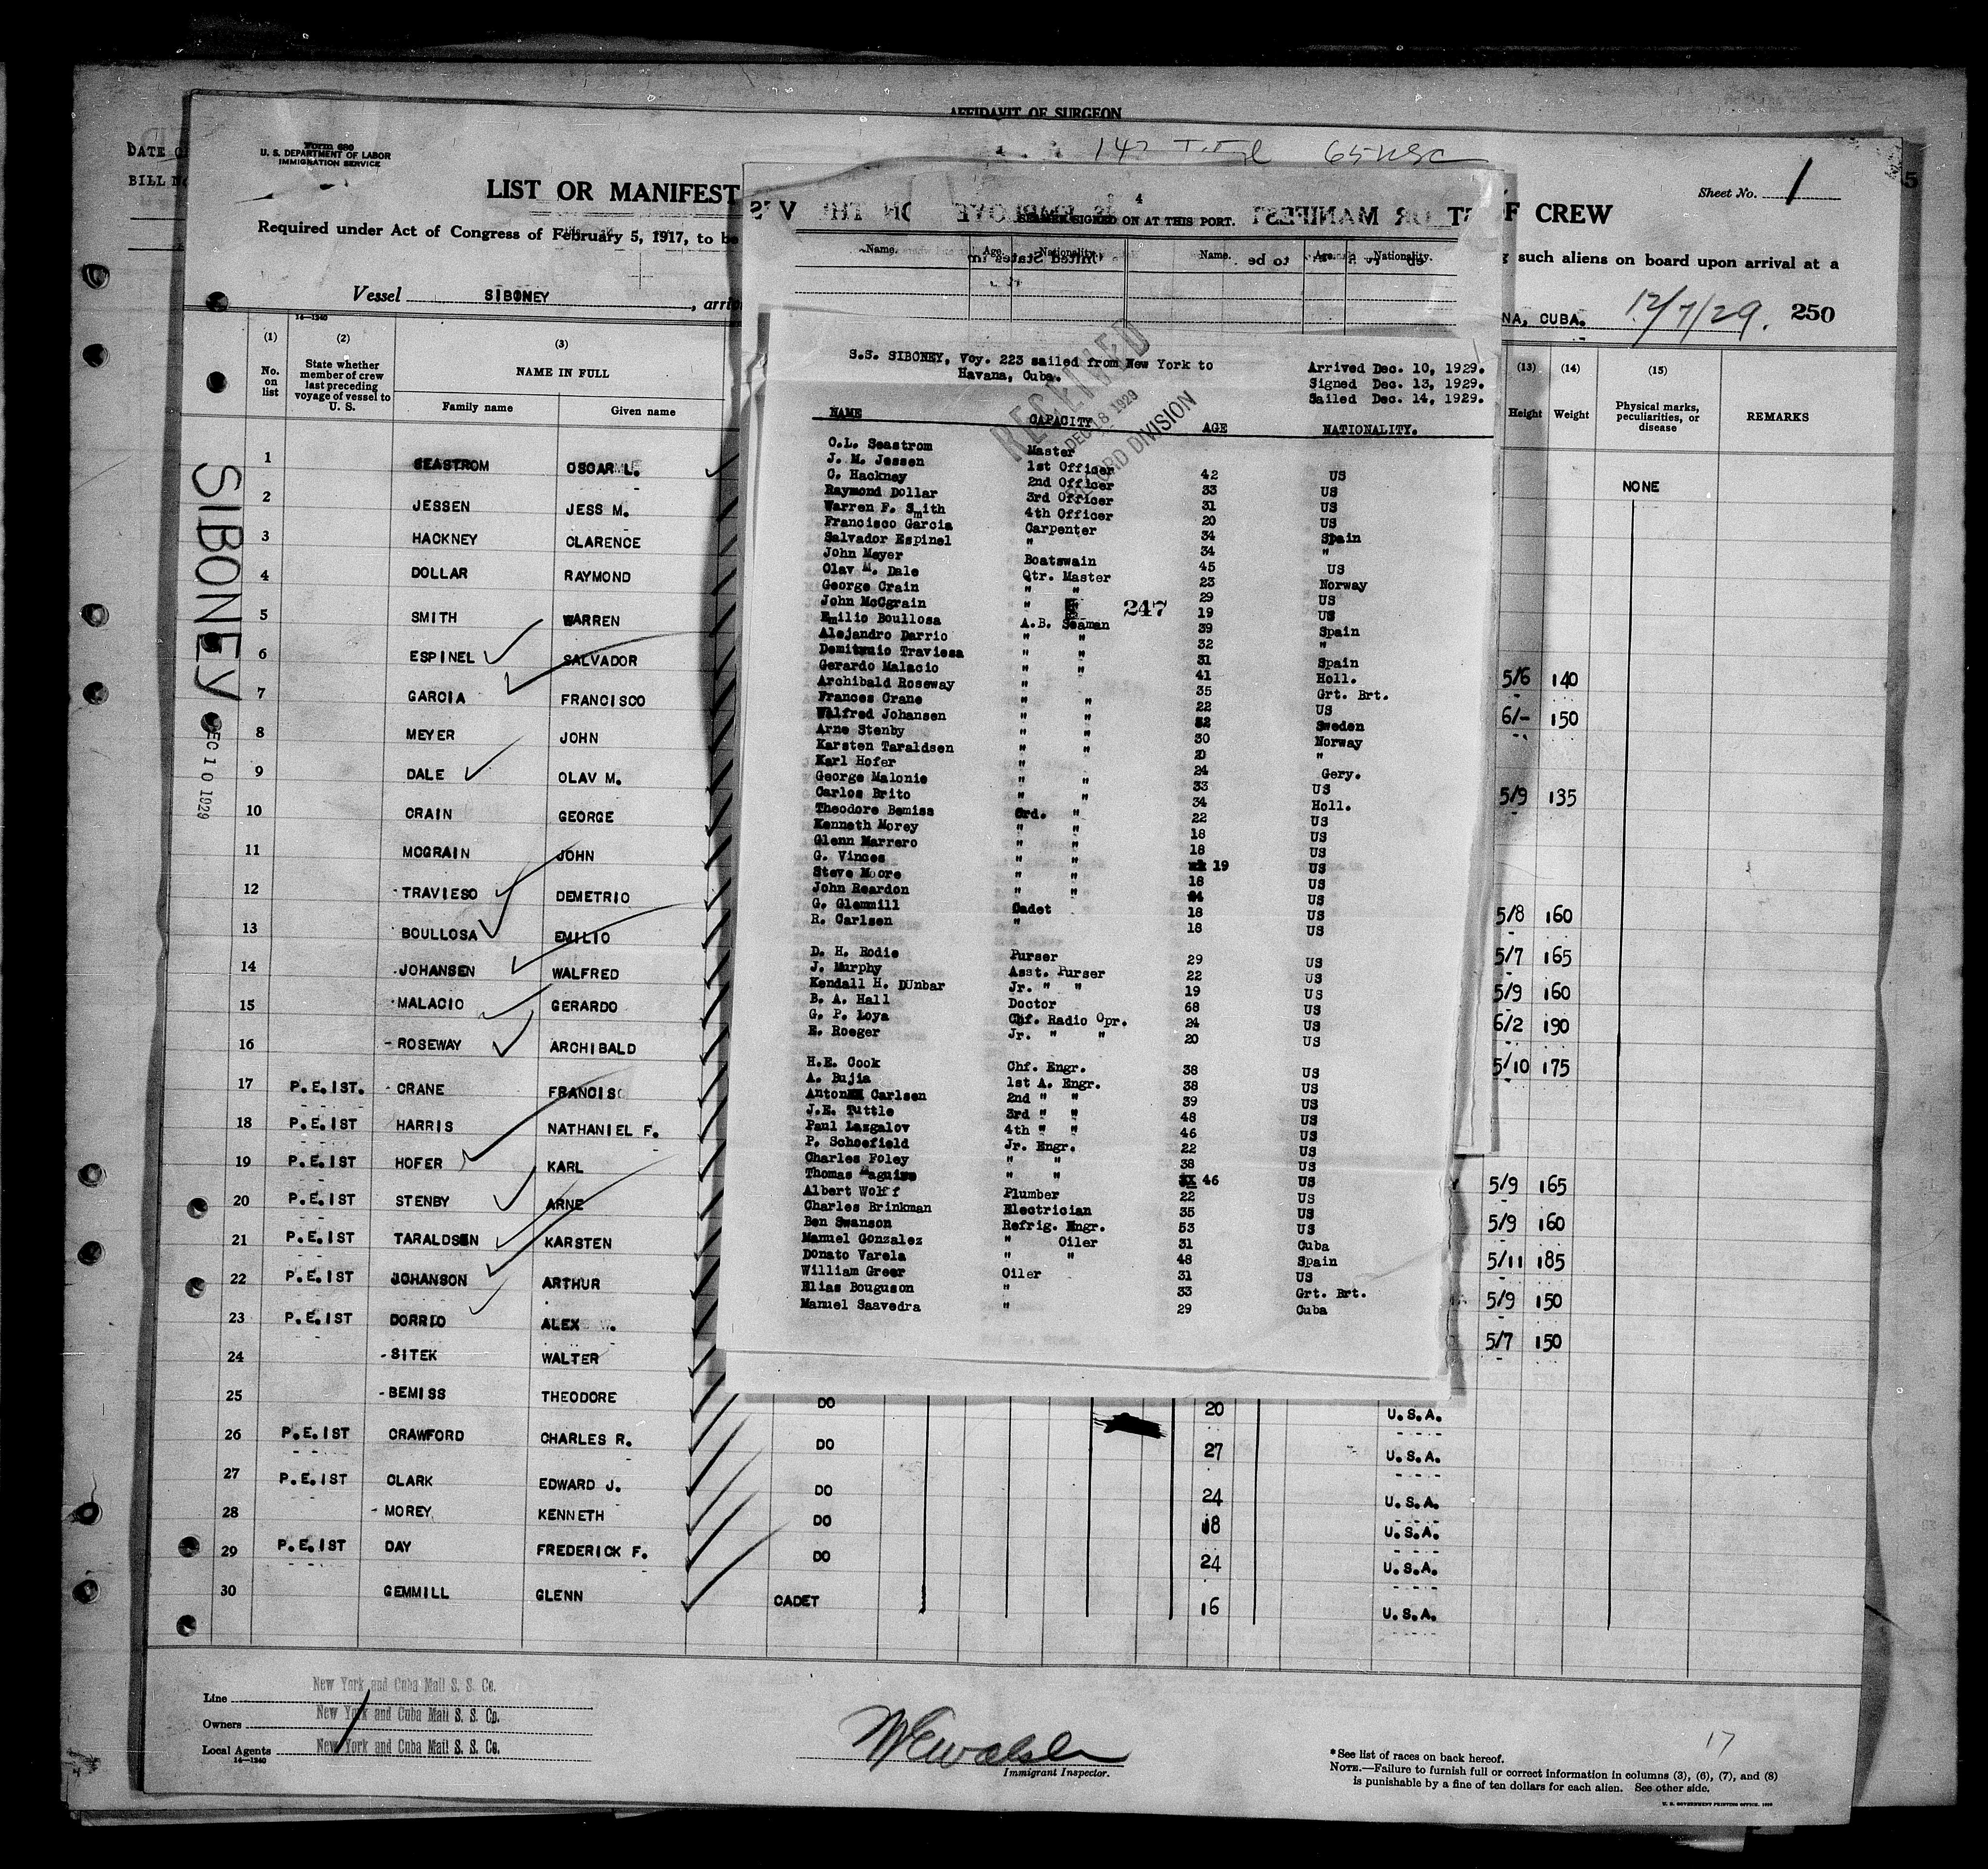 AFFIDAVIT OF SURGEON
DATE O
BILL N
Form 680
U. S. DEPARTMENT OF LABOR
IMMIGRATION SERVICE
LIST OR MANIFEST
F CREW
Sheet No. 1
5
Required under Act of Congress of February 5, 1917, to be
such aliens on board upon arrival at a
Vessel SIBONEY, arri
NA, CUBA. 12/7/29. 250
14—1240
SEAMEN SIGNED ON AT THIS PORT.
Name. Age. Nationality. Name. Age. Nationality.
S.S. SIBONEY, Voy. 223 sailed from New York to
Havana, Cuba.
Arrived Dec. 10, 1929.
Signed Dec. 13, 1929.
Sailed Dec. 14, 1929.
RECEIVED
DEC 18 1929
RD DIVISION
NAME CAPACITY AGE NATIONALITY.
O.L. Seastrom Master
J. M. Jessen 1st Officer 42 US
C. Hackney 2nd Officer 33 US
Raymond Dollar 3rd Officer 31 US
Warren F. Smith 4th Officer 20 US
Francisco Garcia Carpenter 34 Spain
Salvador Espinel " 34 "
John Meyer Boatswain 45 US
Olav M. Dale Qtr. Master 23 Norway
George Crain " " 29 US
John McCgrain " " 19 US
247
Emilio Boullosa A.B. Seaman 39 Spain
Alejandro Darrio " " 32 "
Demitruio Traviesa " " 31 Spain
Gerardo Malacio " " 41 Holl.
Archibald Roseway " 35 Grt. Brt.
Frances Crane " " 22 US
Walfred Johansen " " 32 Sweden
Arne Stenby " " 30 Norway
Karsten Taraldsen " " 20 "
Karl Hofer " 24 Gery.
George Malonie " " 33 US
Carlos Brito " " 34 Holl.
Theodore Bemiss Ord. " 22 US
Kenneth Morey " " 18 US
Glenn Marrero " " 18 US
G. Vinces " " 19 US
Steve Moore " " 18 US
John Reardon " " 24 US
G. Glemmill Cadet 18 US
R. Carlsen " 18 US
D. H. Rodie Purser 29 US
J. Murphy Asst. Purser 22 US
Kendall H. DUnbar Jr. " " 19 US
B. A. Hall Doctor 68 US
G. P. Loya Chf. Radio Opr. 24 US
E. Roeger Jr. " " 20 US
H.E. Cook Chf. Engr. 38 US
A. Bujia 1st A. Engr. 38 US
Anton Carlsen 2nd " " 39 US
J.E. Tuttle 3rd " " 48 US
Paul Lazgalov 4th " " 46 US
P. Schoefield Jr. Engr. 22 US
Charles Foley " " 38 US
Thomas Maguire " " 46 US
Albert Wolff Plumber 22 US
Charles Brinkman Electrician 35 US
Ben Swanson Refrig. Engr. 53 US
Manuel Gonzalez " Oiler 31 Cuba
Donato Varela " " 48 Spain
William Greer Oiler 31 US
Elias Bouguson " 33 Grt. Brt.
Manuel Saavedra " 29 Cuba
(1) (2) (3) (13) (14) (15)
No. on list
State whether member of crew last preceding voyage of vessel to U. S.
NAME IN FULL
Family name Given name
Height Weight
Physical marks, peculiarities, or disease
REMARKS
SIBONEY
EC 10 1929
1 SEASTROM OSCAR L. NONE
2 JESSEN JESS M.
3 HACKNEY CLARENCE
4 DOLLAR RAYMOND
5 SMITH WARREN
6 ESPINEL SALVADOR 5/6 140
7 GARCIA FRANCISCO 6/- 150
8 MEYER JOHN
9 DALE OLAV M. 5/9 135
10 CRAIN GEORGE
11 MCGRAIN JOHN
12 TRAVIESO DEMETRIO 5/8 160
13 BOULLOSA EMILIO 5/7 165
14 JOHANSEN WALFRED 5/9 160
15 MALACIO GERARDO 6/2 190
16 ROSEWAY ARCHIBALD 5/10 175
17 P.E.IST. CRANE FRANCIS
18 P.E.IST HARRIS NATHANIEL F.
19 P.E.IST HOFER KARL 5/9 165
20 P.E.IST STENBY ARNE 5/9 160
21 P.E.IST TARALDSEN KARSTEN 5/11 185
22 P.E.IST JOHANSON ARTHUR 5/9 150
23 P.E.IST DORRIO ALEX 5/7 150
24 SITEK WALTER
25 BEMISS THEODORE DO 20 U.S.A.
26 P.E.IST CRAWFORD CHARLES R. DO 27 U.S.A.
27 P.E.IST CLARK EDWARD J. DO 24 U.S.A.
28 MOREY KENNETH DO 18 U.S.A.
29 P.E.IST DAY FREDERICK F. DO 24 U.S.A.
30 GEMMILL GLENN CADET 16 U.S.A.
Line New York and Cuba Mail S. S. Co.
Owners New York and Cuba Mail S. S. Co.
Local Agents New York and Cuba Mail S. S. Co.
14—1240
Immigrant Inspector.
17
*See list of races on back hereof.
NOTE.—Failure to furnish full or correct information in columns (3), (6), (7), and (8)
is punishable by a fine of ten dollars for each alien. See other side.